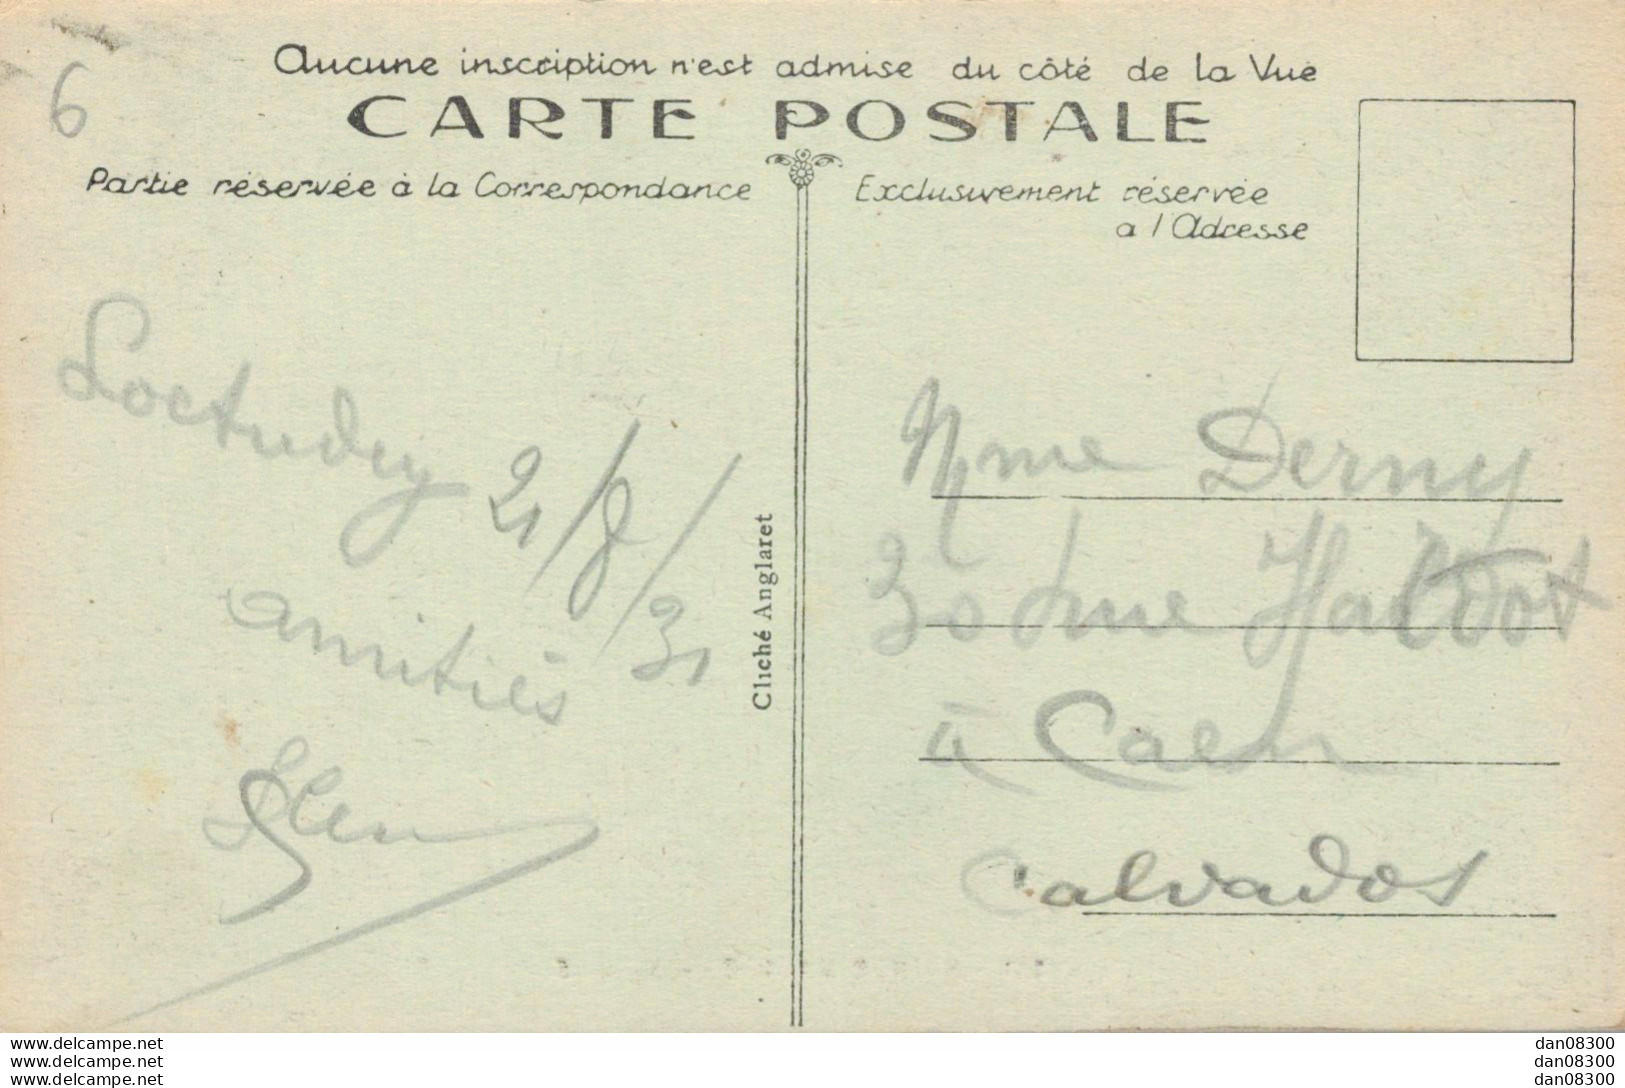 6
Aucune inscription n'est admise du côté de la Vue
CARTE POSTALE
Partie réservée à la Correspondance
Exclusivement réservée
a l'Adresse
Loctudy 21/8/31
amitiés
Cliché Anglaret
Mme Derny
30
à Caen
Calvados
www.delcampe.net
www.delcampe.net
www.delcampe.net
dan08300
dan08300
dan08300